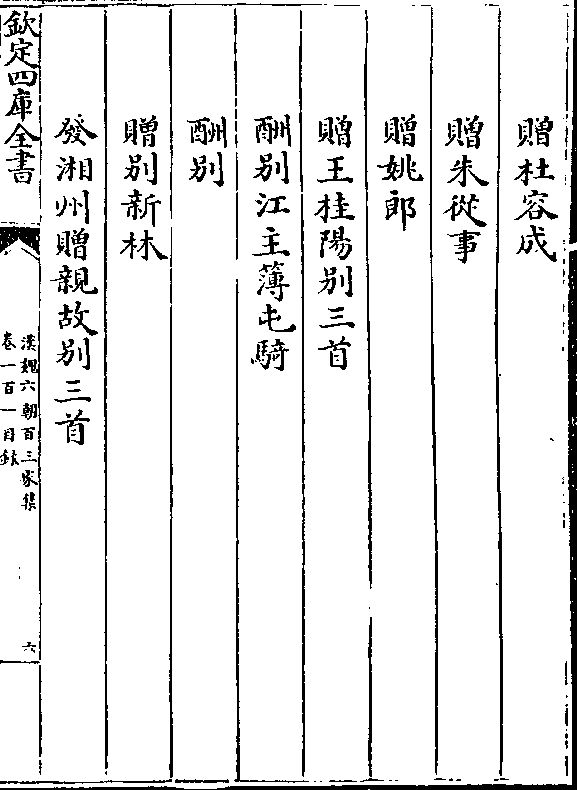 贈杜容成
贈朱從事
贈姚郎
贈王桂陽別三首
酬別江主薄屯騎
酬别
贈别新林
發湘州贈親故别三首
欽定四庫全書
漢魏六朝百三家集
卷一百一目録
六